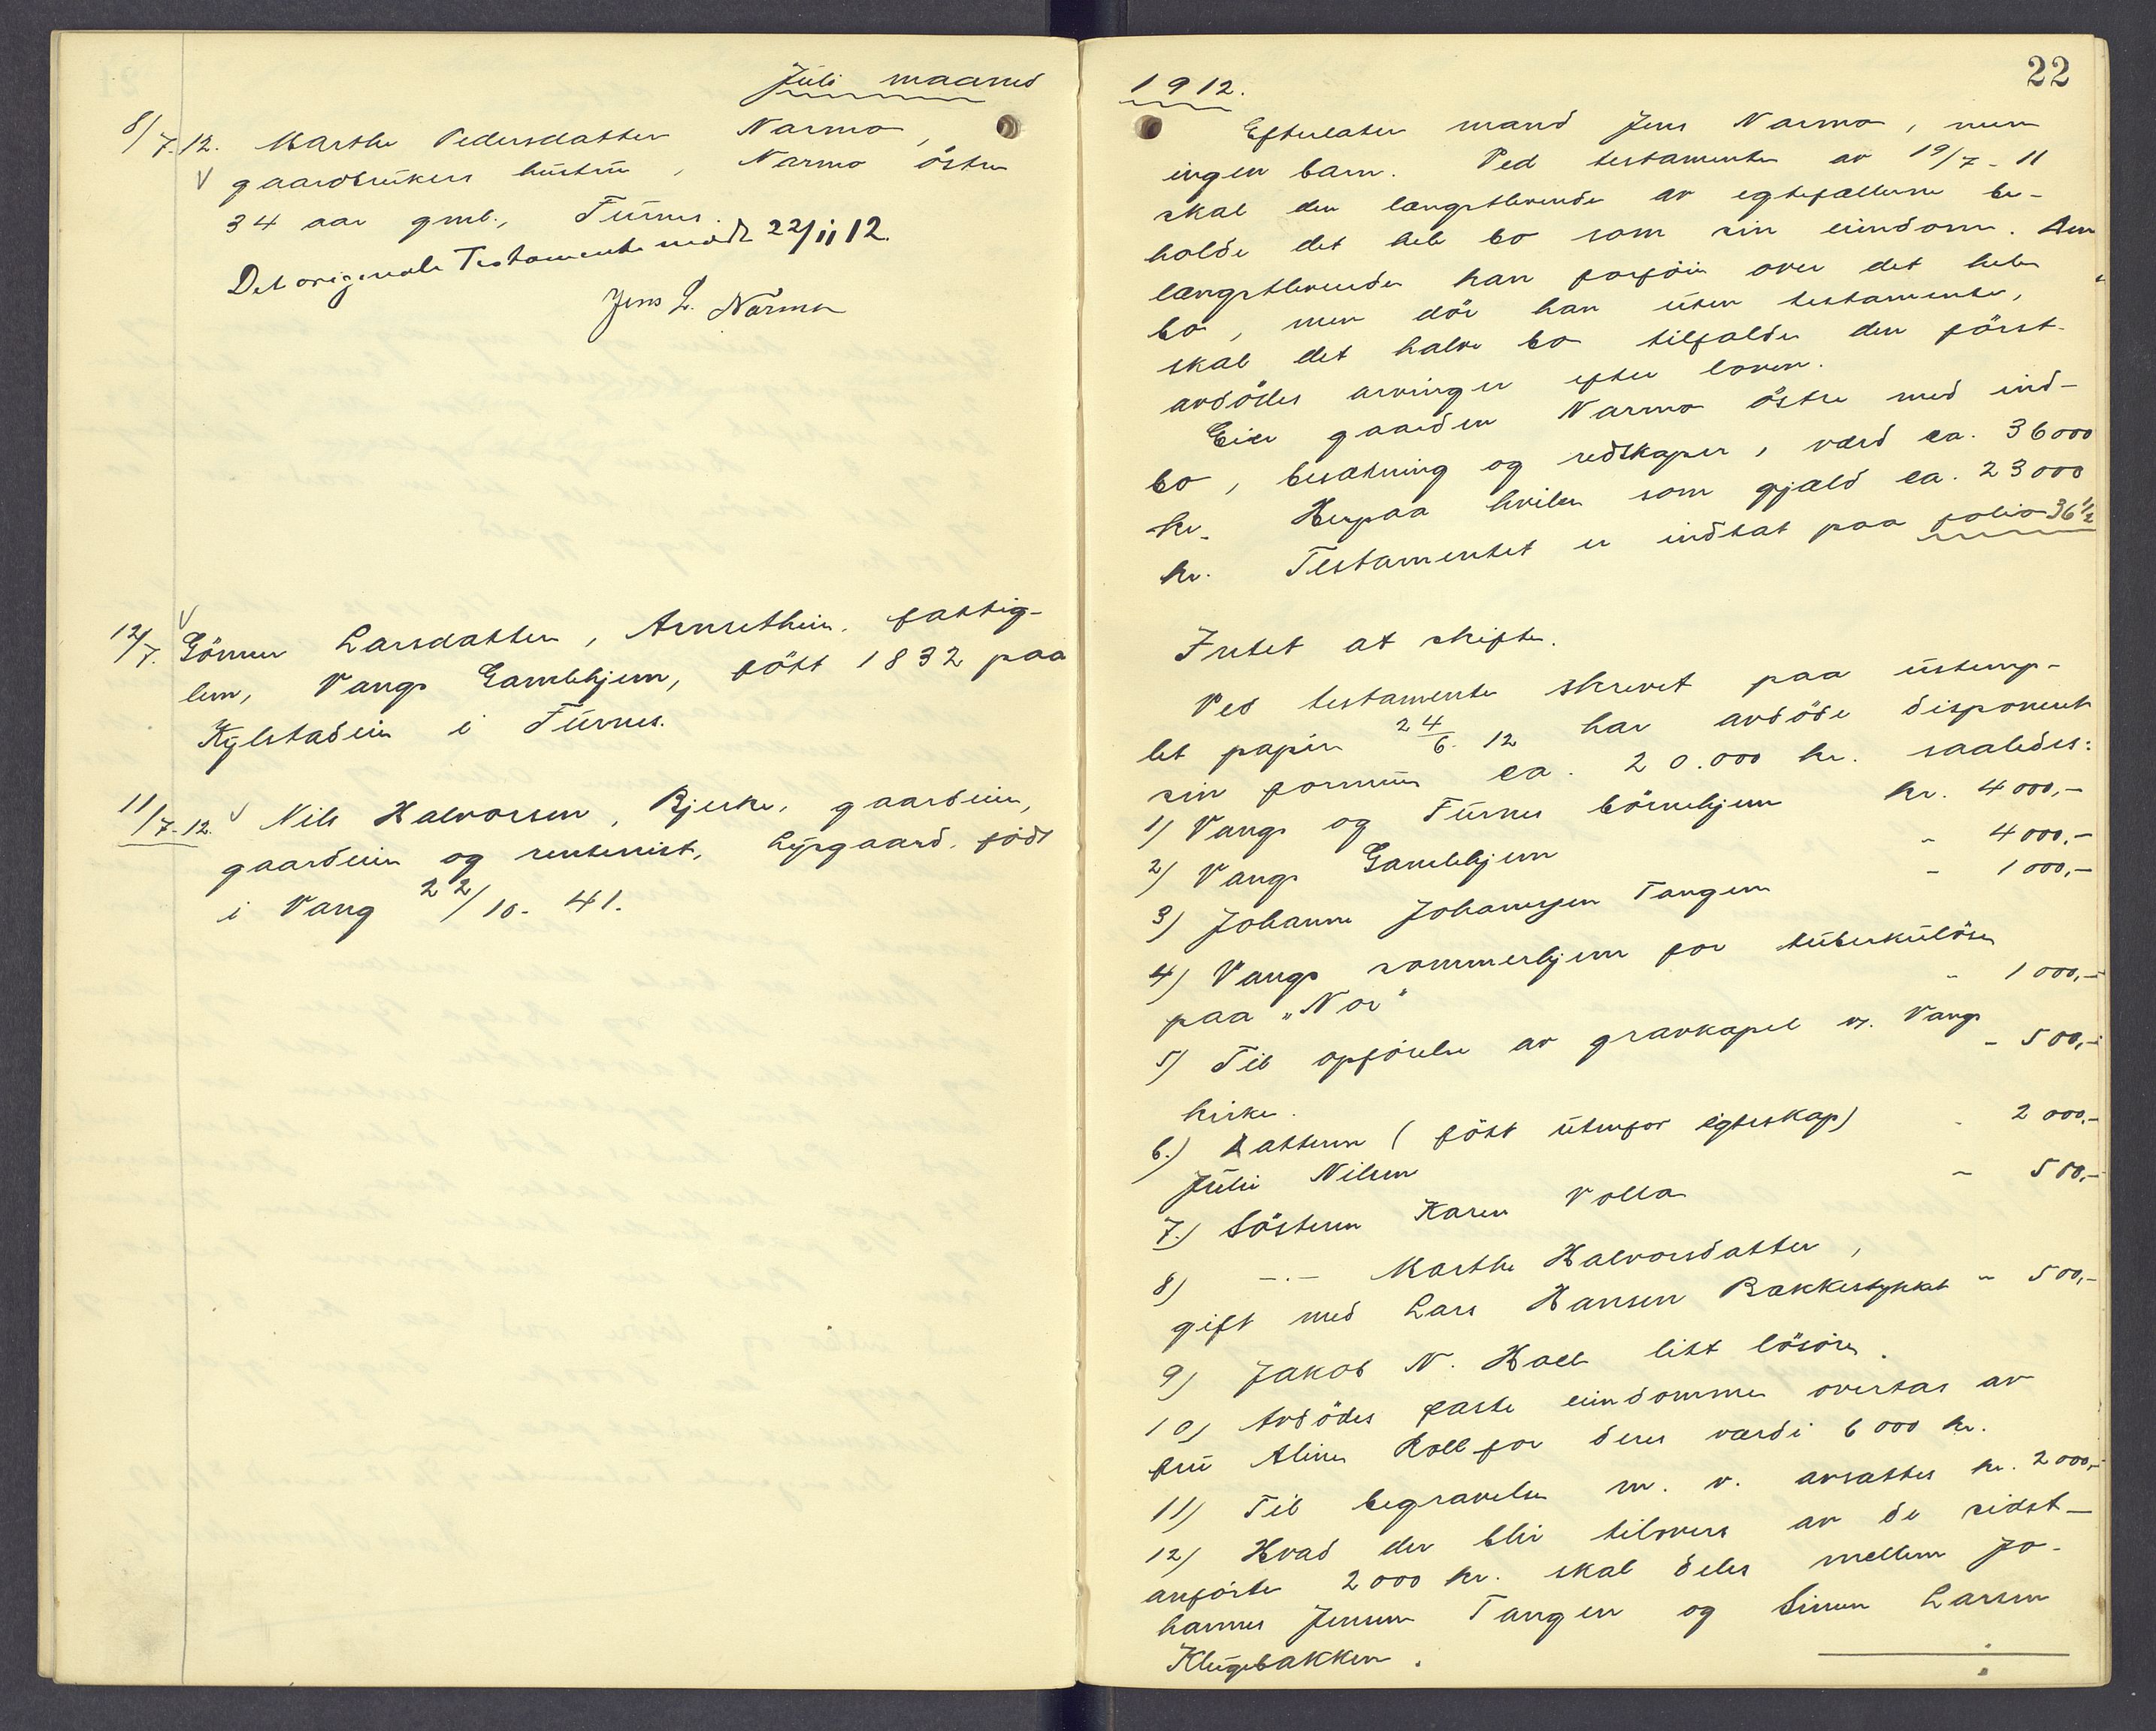 Juli maaned
8/7.12. Marthe Pedersdatter Narmo,
gaardbrukers hustru, Narmo östre
34 aar gml., Furnes.
Det originale Testamente modt 22/11 12.
Jens L. Narmo
12/7. Gönner Larsdatter, fattig-
lem, Vangs Gamlehjem, födt 1832 paa
Kylstadeie i Furnes.
11/7-12. Nils Halvorsen, Bjerke, gaardeier,
gaardeier og rentenist, Lysgaard, födt
i Vang 22/10-41.
22
1912.
Efterlater mand Jens Narmo, men
ingen barn. Ved testamente av 19/7-11
skal den længstlevende av egtefællerne be-
holde det hele bo som sin eiendom. Den
længstlevende kan forföie over det hele
bo, men dör han uten testamente,
skal det halve bo tilfalde den först-
avdödes arvinger efter loven.
Eier gaarden Narmo östre med ind-
bo, besætning og redskaper, værd ca. 36000
kr. Herpaa hviler som gjæld ca. 23000
kr. Testamentet er indtat paa folio 36 1/2
Intet at skifte.
Ved testamente skrevet paa ustemp-
let papir 24/6.12 har avdöde disponert
sin formue ca. 20.000 kr. saaledes:
1) Vangs og Furnes börnehjem kr. 4000,-
2) Vangs Gamlehjem " 4000,-
3) Johanne Johannesen Tangen " 1000,-
4) Vangs sommerhjem for tuberkulöse
paa "Nor" " 1000,-
5) Til opförelse av gravkapel v. Vangs
kirke. " 500,-
6.) Datteren (födt utenfor egteskap)
Julie Nilsen " 2000,-
7.) Sösteren Karen Volla " 500,-
8) -.- Marthe Halvorsdatter,
gift med Lars Hansen Bakkestykket " 500,-
9) Jakob N. Holl litt lösöre.
10) Avdödes faste eiendomme overtas av
fru Aline Holl for deres værdi 6000 kr.
11) Til begravelse m. v. avsættes kr. 2000,-
12) Hvad der blir tilovers av de sidst-
anförte 2000 kr. skal deles mellem Jo-
hannes Jensen Tangen og Simen Larsen
Klugebakken.